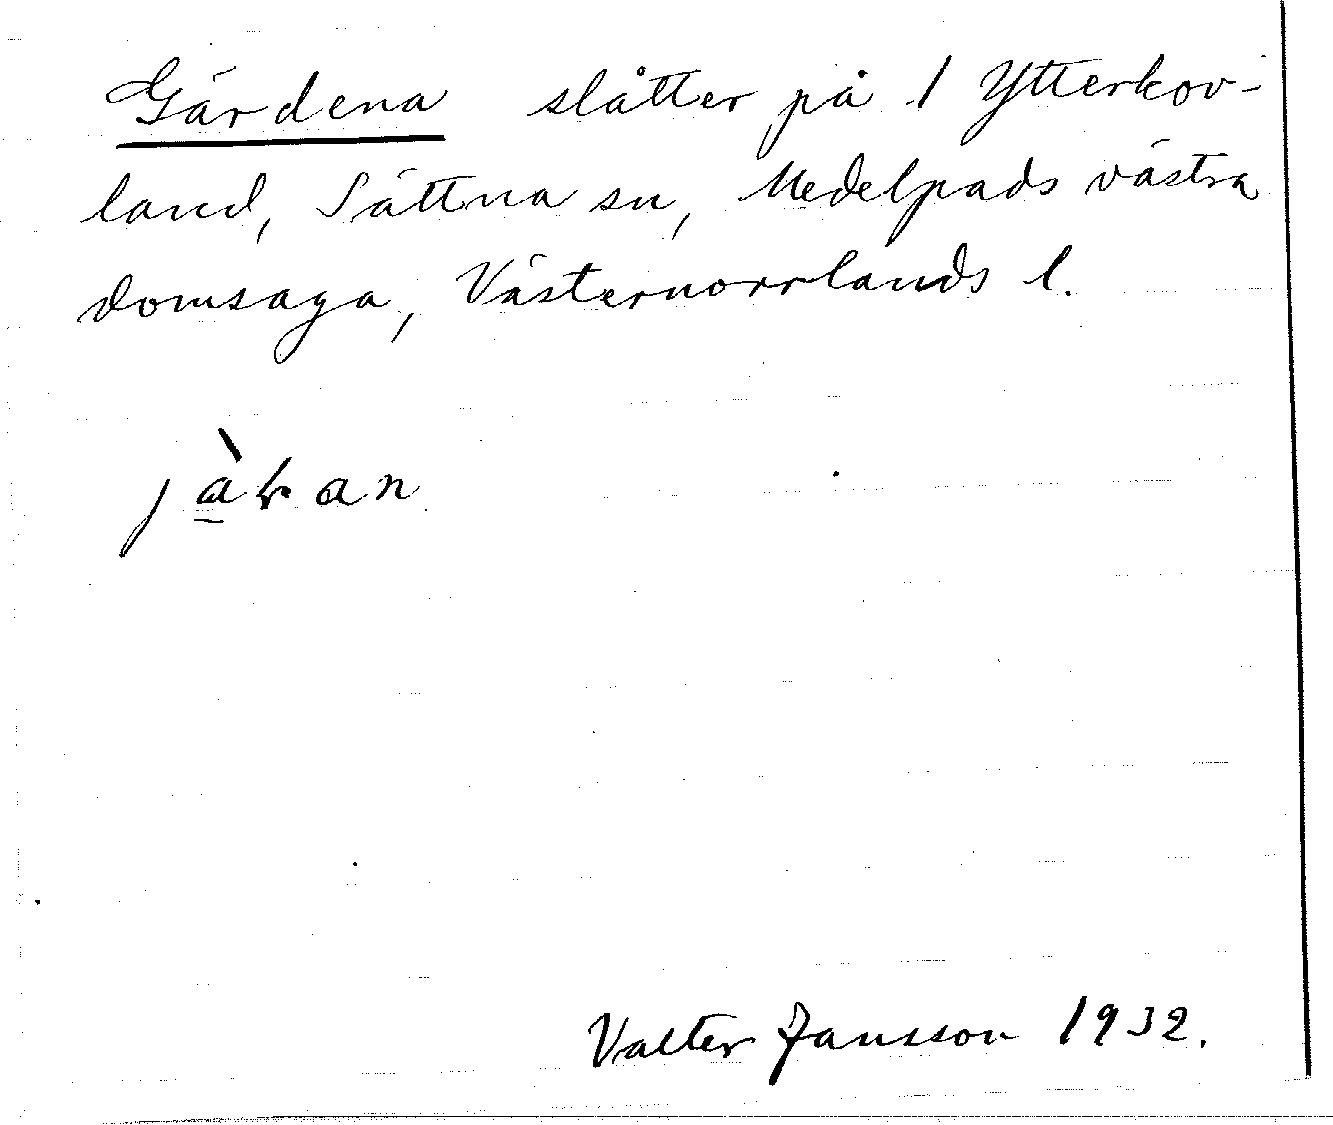 Gärdena slåtter på 1 Ytterkov-
land, Sättna sn, Medelpads västra
domsaga, Västernorrlands l.
Valter Jansson 1932.